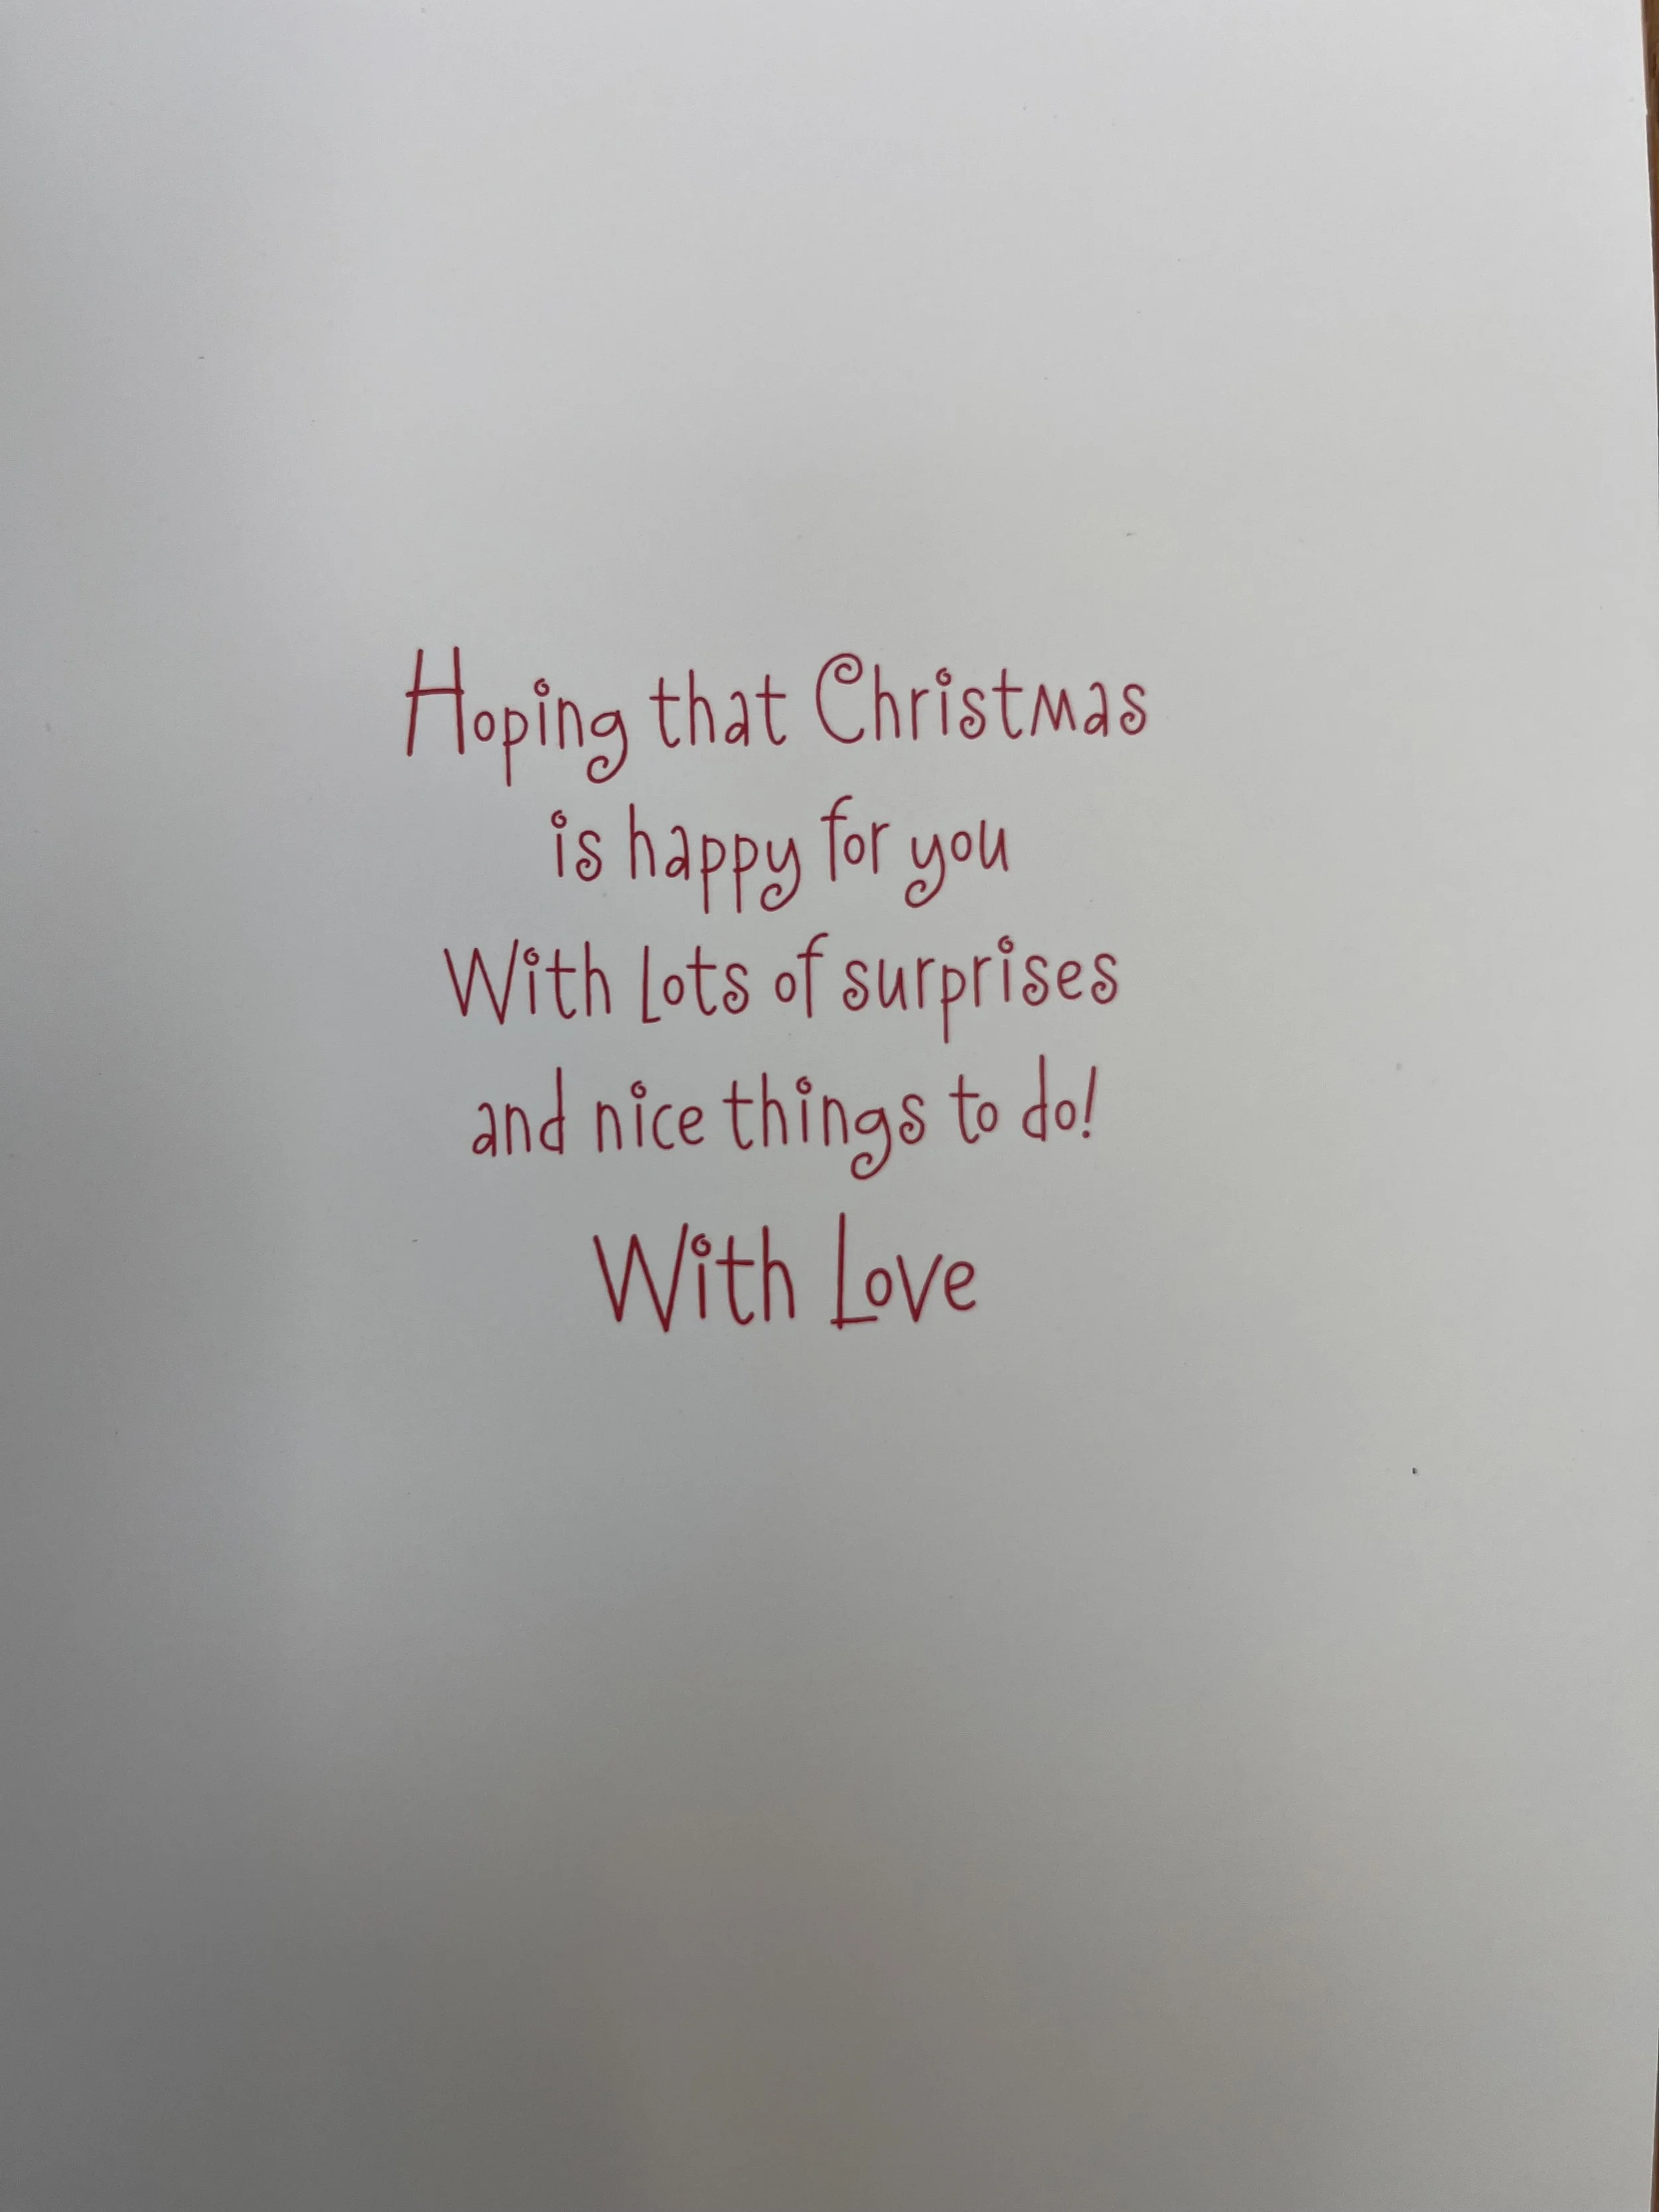 Hoping that Christmas
is happy for you
With lots of surprises
and nice things to do!
With Love